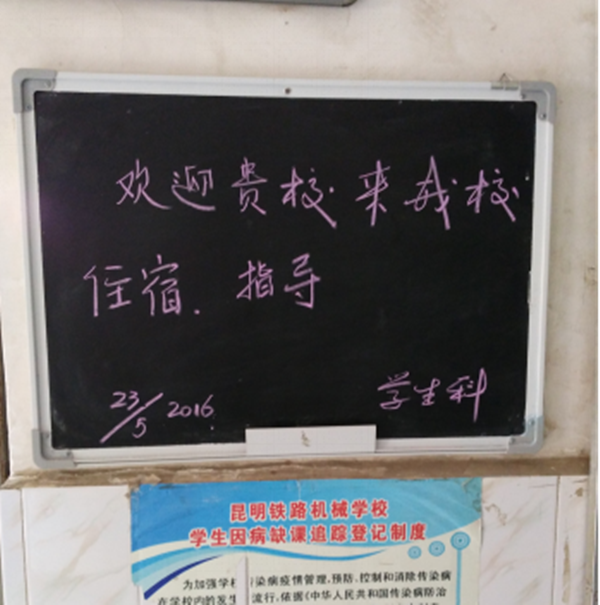 欢迎贵校来我校
住宿.指导
学生科
23/5 2016
昆明铁路机械学校
学生因病缺课追踪登记制度
为加强学校
染病疫情管理,预防、控制和消除传染病
在学校内的发生
流行,依据《中华人民共和国传染病防治